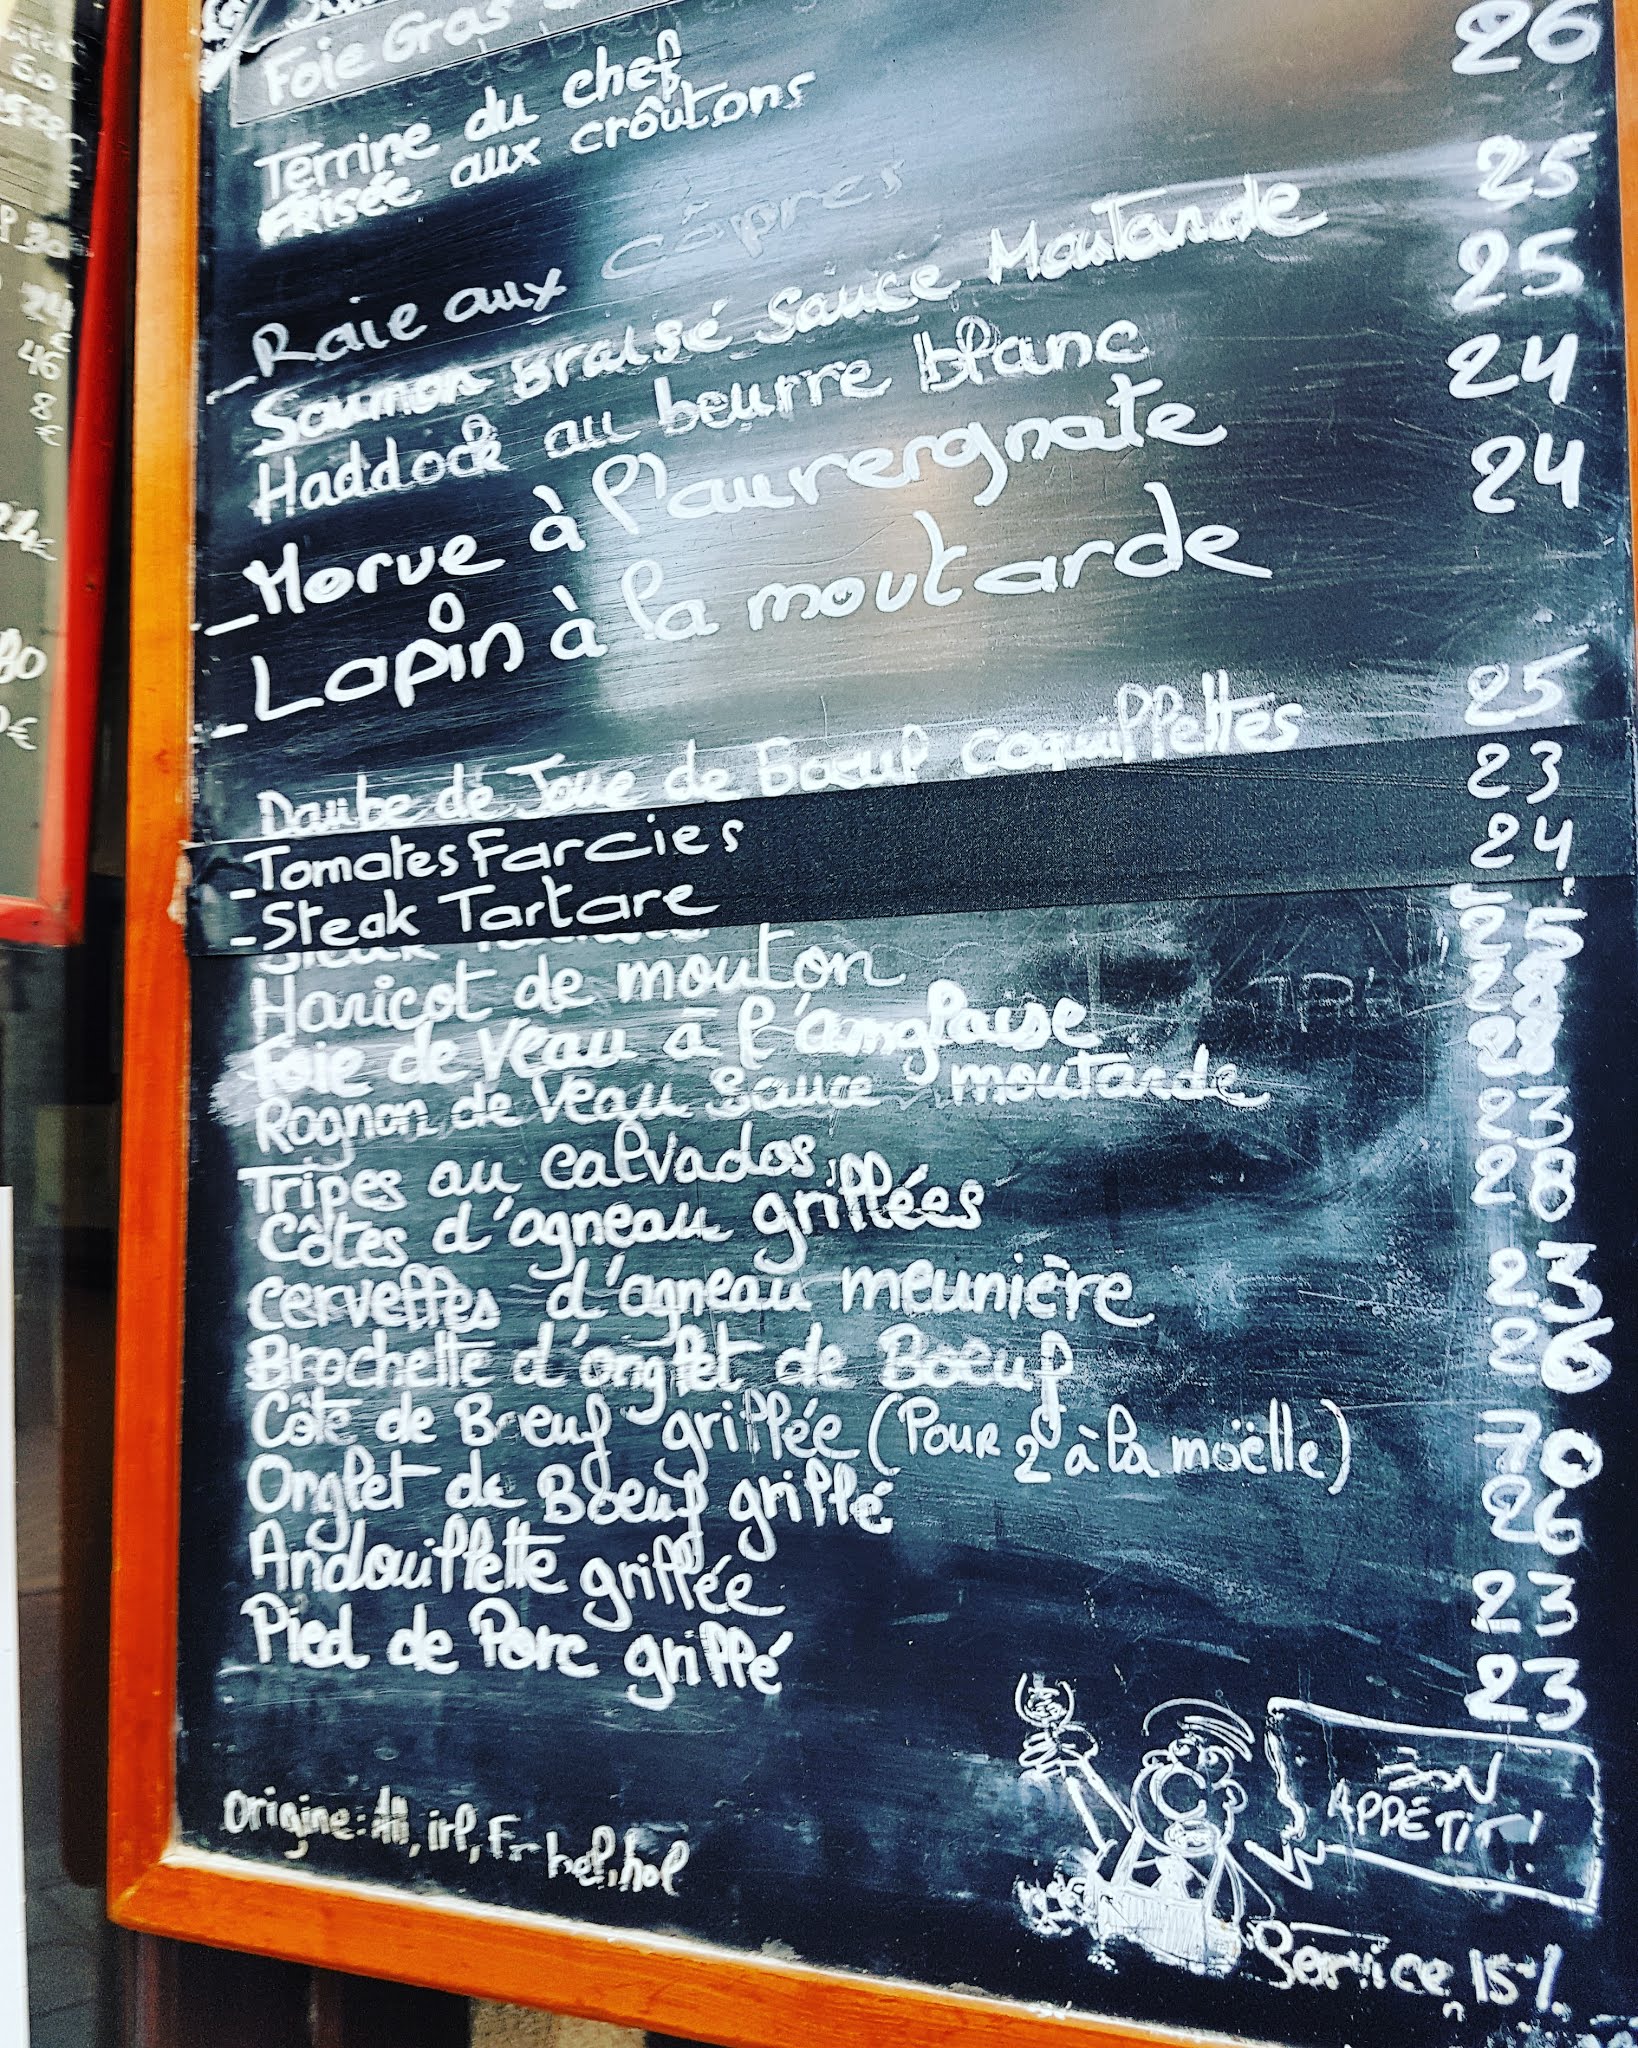 Foie Gras
26
Terrine du chef
Frisée aux croûtons
- Raie aux câpres 25
Saumon Braisé Sauce Moutarde 25
Haddock au beurre blanc 24
- Morue à l'auvergnate 24
- Lapin à la moutarde
Daube de Joue de Boeuf coquillettes 25
- Tomates Farcies 23
- Steak Tartare 24
Haricot de mouton 25
Foie de Veau à l'anglaise 28
Rognon de Veau Sauce moutarde 28
Tripes au calvados 23
Côtes d'agneau grillées 28
cervelles d'agneau meunière 23
Brochette d'onglet de Boeuf 26
Côte de Boeuf grillée (Pour 2 à la moëlle) 70
Onglet de Boeuf grillé 26
Andouillette grillée 23
Pied de Porc grillé 23
BON
APPÉTIT!
origine: All, irl, Fr bel, hol
Service 15%